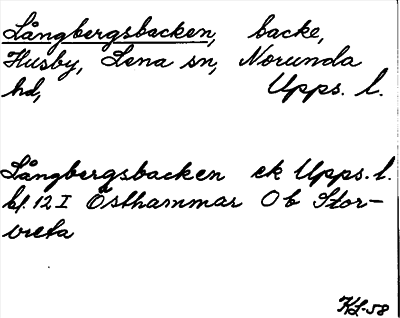 Långbergsbacken, backe,
Husby, Lena sn, Norunda
hd, Upps. l.
Långbergsbacken ek Upps. l.
bl. 12 I Östhammar Ob Stor-
vreta
KL-58